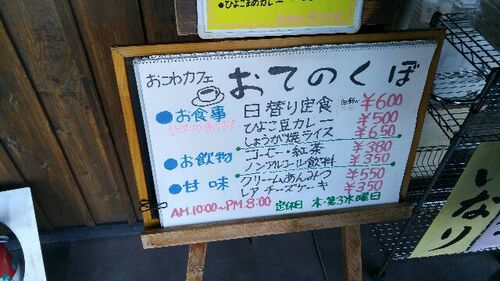 ひよこまめカレー
おこわカフェ
おてのくぼ
●お食事 日替り定食 ¥600
ひよこ豆カレー ¥500
しょうが焼ライス ¥650
●お飲物 コーヒー・紅茶 ¥380
ノンアルコール飲料 ¥350
●甘味 クリームあんみつ ¥550
レアチーズケーキ ¥350
AM.10:00~PM.8:00 定休日 木・第3水曜日
いなり